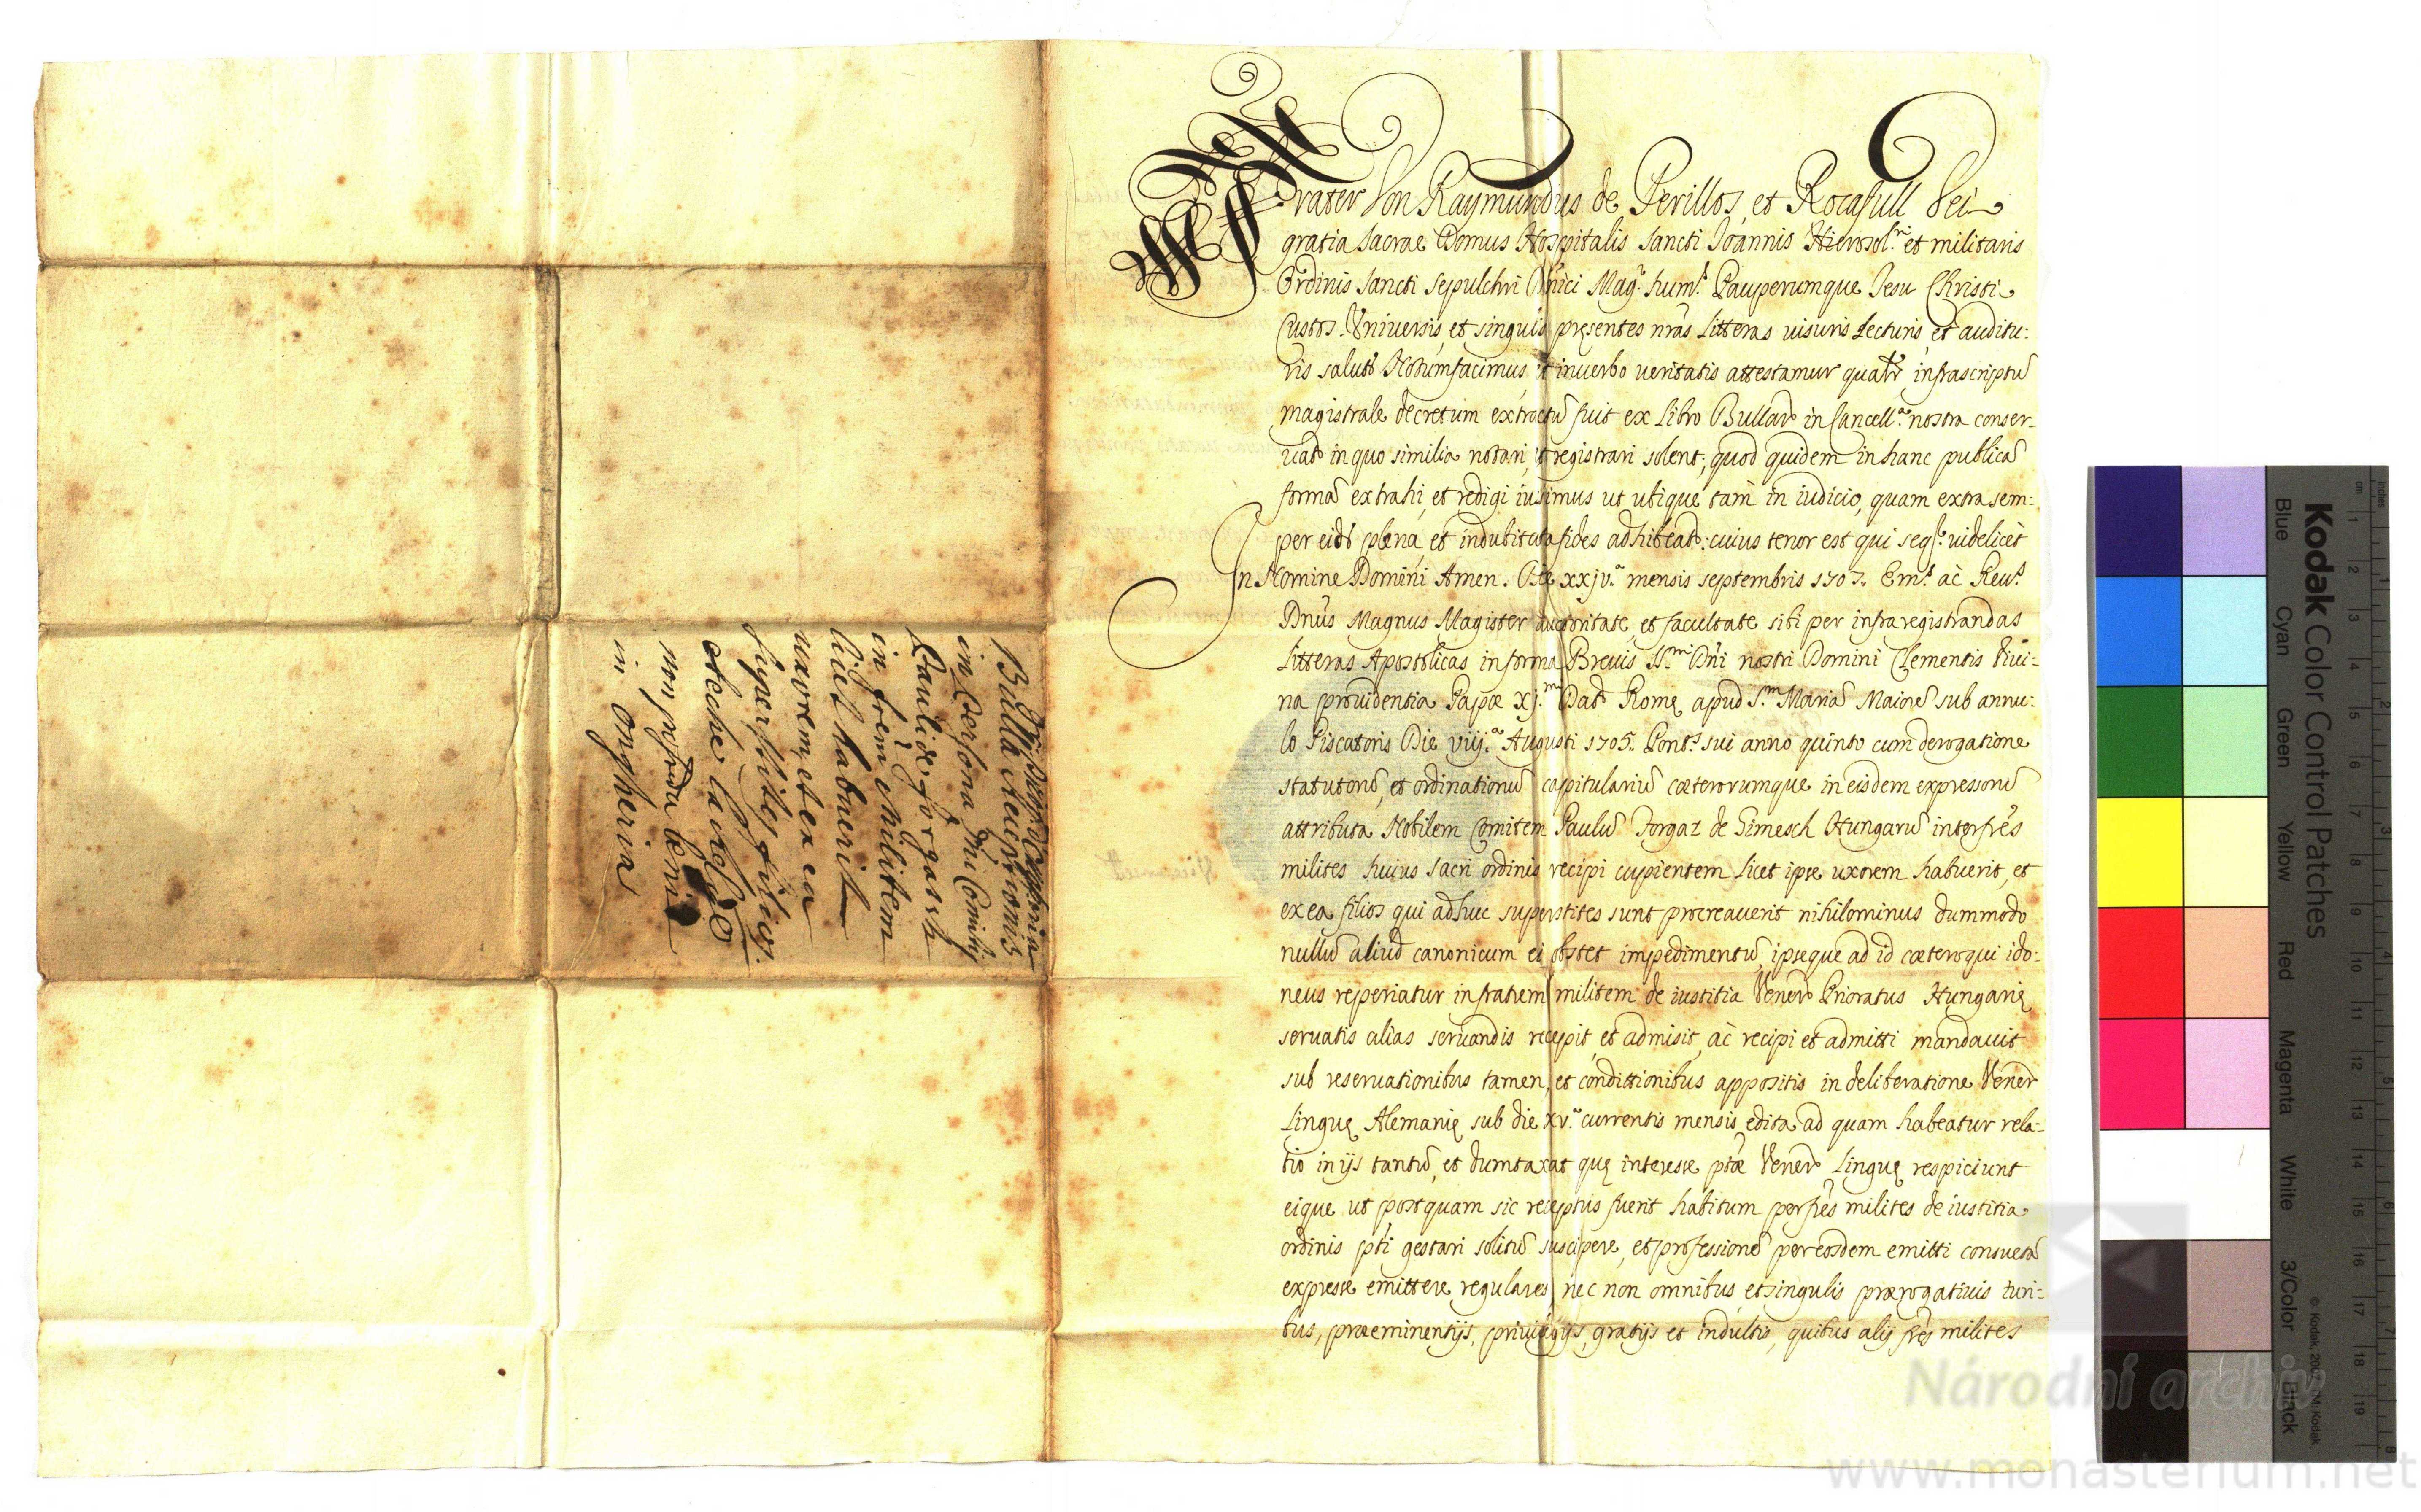 Frater Don Raymundus de Perillos, et Rocafull Dei
gratia Sacrae Domus Hospitalis Sancti Joannis Hierosol.ni et militaris
Ordinis Sancti Sepulchri Dnici Mag.r hum.s Pauperumque Jesu Christi
Custos. Universis, et singulis presentes nras Litteras visuris Lecturis, et auditu:
ris salut Notum facimus et in verbo veritatis attestamur infrascriptu
magistrale decretum extractu fuit ex Libro Bullar in Cancell.a nostra conser-
vat in quo similia notari, et registrari solent; quod quidem in hanc publica
forma extrahi, et redigi iussimus ut ubique tam in iudicio, quam extra sem:
per eid plena, et indubitata fides adhibeat: cuius tenor est qui seq.r videlicet
In Nomine Domini Amen. Die xxjv.a mensis septembris 1707. Em.s ac Rev.s
Dnus Magnus Magister auctoritate, et facultate sibi per infraregistrandas
Litteras Apostolicas in forma Brevis SS.mi Dni nostri Domini Clementis Divi:
na providentia Papae xj.mi Dat Rome apud S.m Maria Maiore sub annu:
lo Piscatoris Die viij.a Augusti 1705. Pont.s sui anno quinto cum derogatione
statutoru, et ordinationu capitulariu caeterorumque in eisdem expressoru
attributa Nobilem Comitem Paulu Forgaz de Gimesch Hungaru inter fres
milites huius sacri ordinis recipi cupientem licet ipse uxorem habuerit, et
ex ea filios qui adhuc superstites sunt procreaverit nihilominus dummodo
nullu aliud canonicum ei obstet impedimentu, ipseque ad id caeteroqui ido:
neus reperiatur in fratrem militem de iustitia Vener Prioratus Hungarie
servatis alias servandis recepit, et admisit, ac recipi et admitti mandavit
sub reservationibus tamen, et condittionibus appositis in deliberatione Vener
Lingue Alemanie sub die xv.a currentis mensis edita ad quam habeatur rela:
tio in ijs tantu, et dumtaxat que interesse ptae Vener Lingue respiciunt
eique ut postquam sic receptus fuerit habitum per fres milites de iustitia
ordinis pti gestari solitu suscipere, et professione per eosdem emitti consueta
expresse emittere regulares, nec non omnibus et singulis praerogativis iuri:
bus, praeeminentijs, privilegijs, gratijs et indultis, quibus alij fres milites
Bulla Receptionis
in Persona Dni Comitis
Pauli de Forgatsch
in frem Militem
licet habuerit
uxorem, et ex ea
superstites filios.
non prenda beni
in Ongheria
Kodak Color Control Patches
Blue Cyan Green Yellow Red Magenta White 3/Color Black
© Kodak, 2007, TM: Kodak
inches 1 2 3 4 5 6 7 8
cm 1 2 3 4 5 6 7 8 9 10 11 12 13 14 15 16 17 18 19
Národní archiv
www.monasterium.net